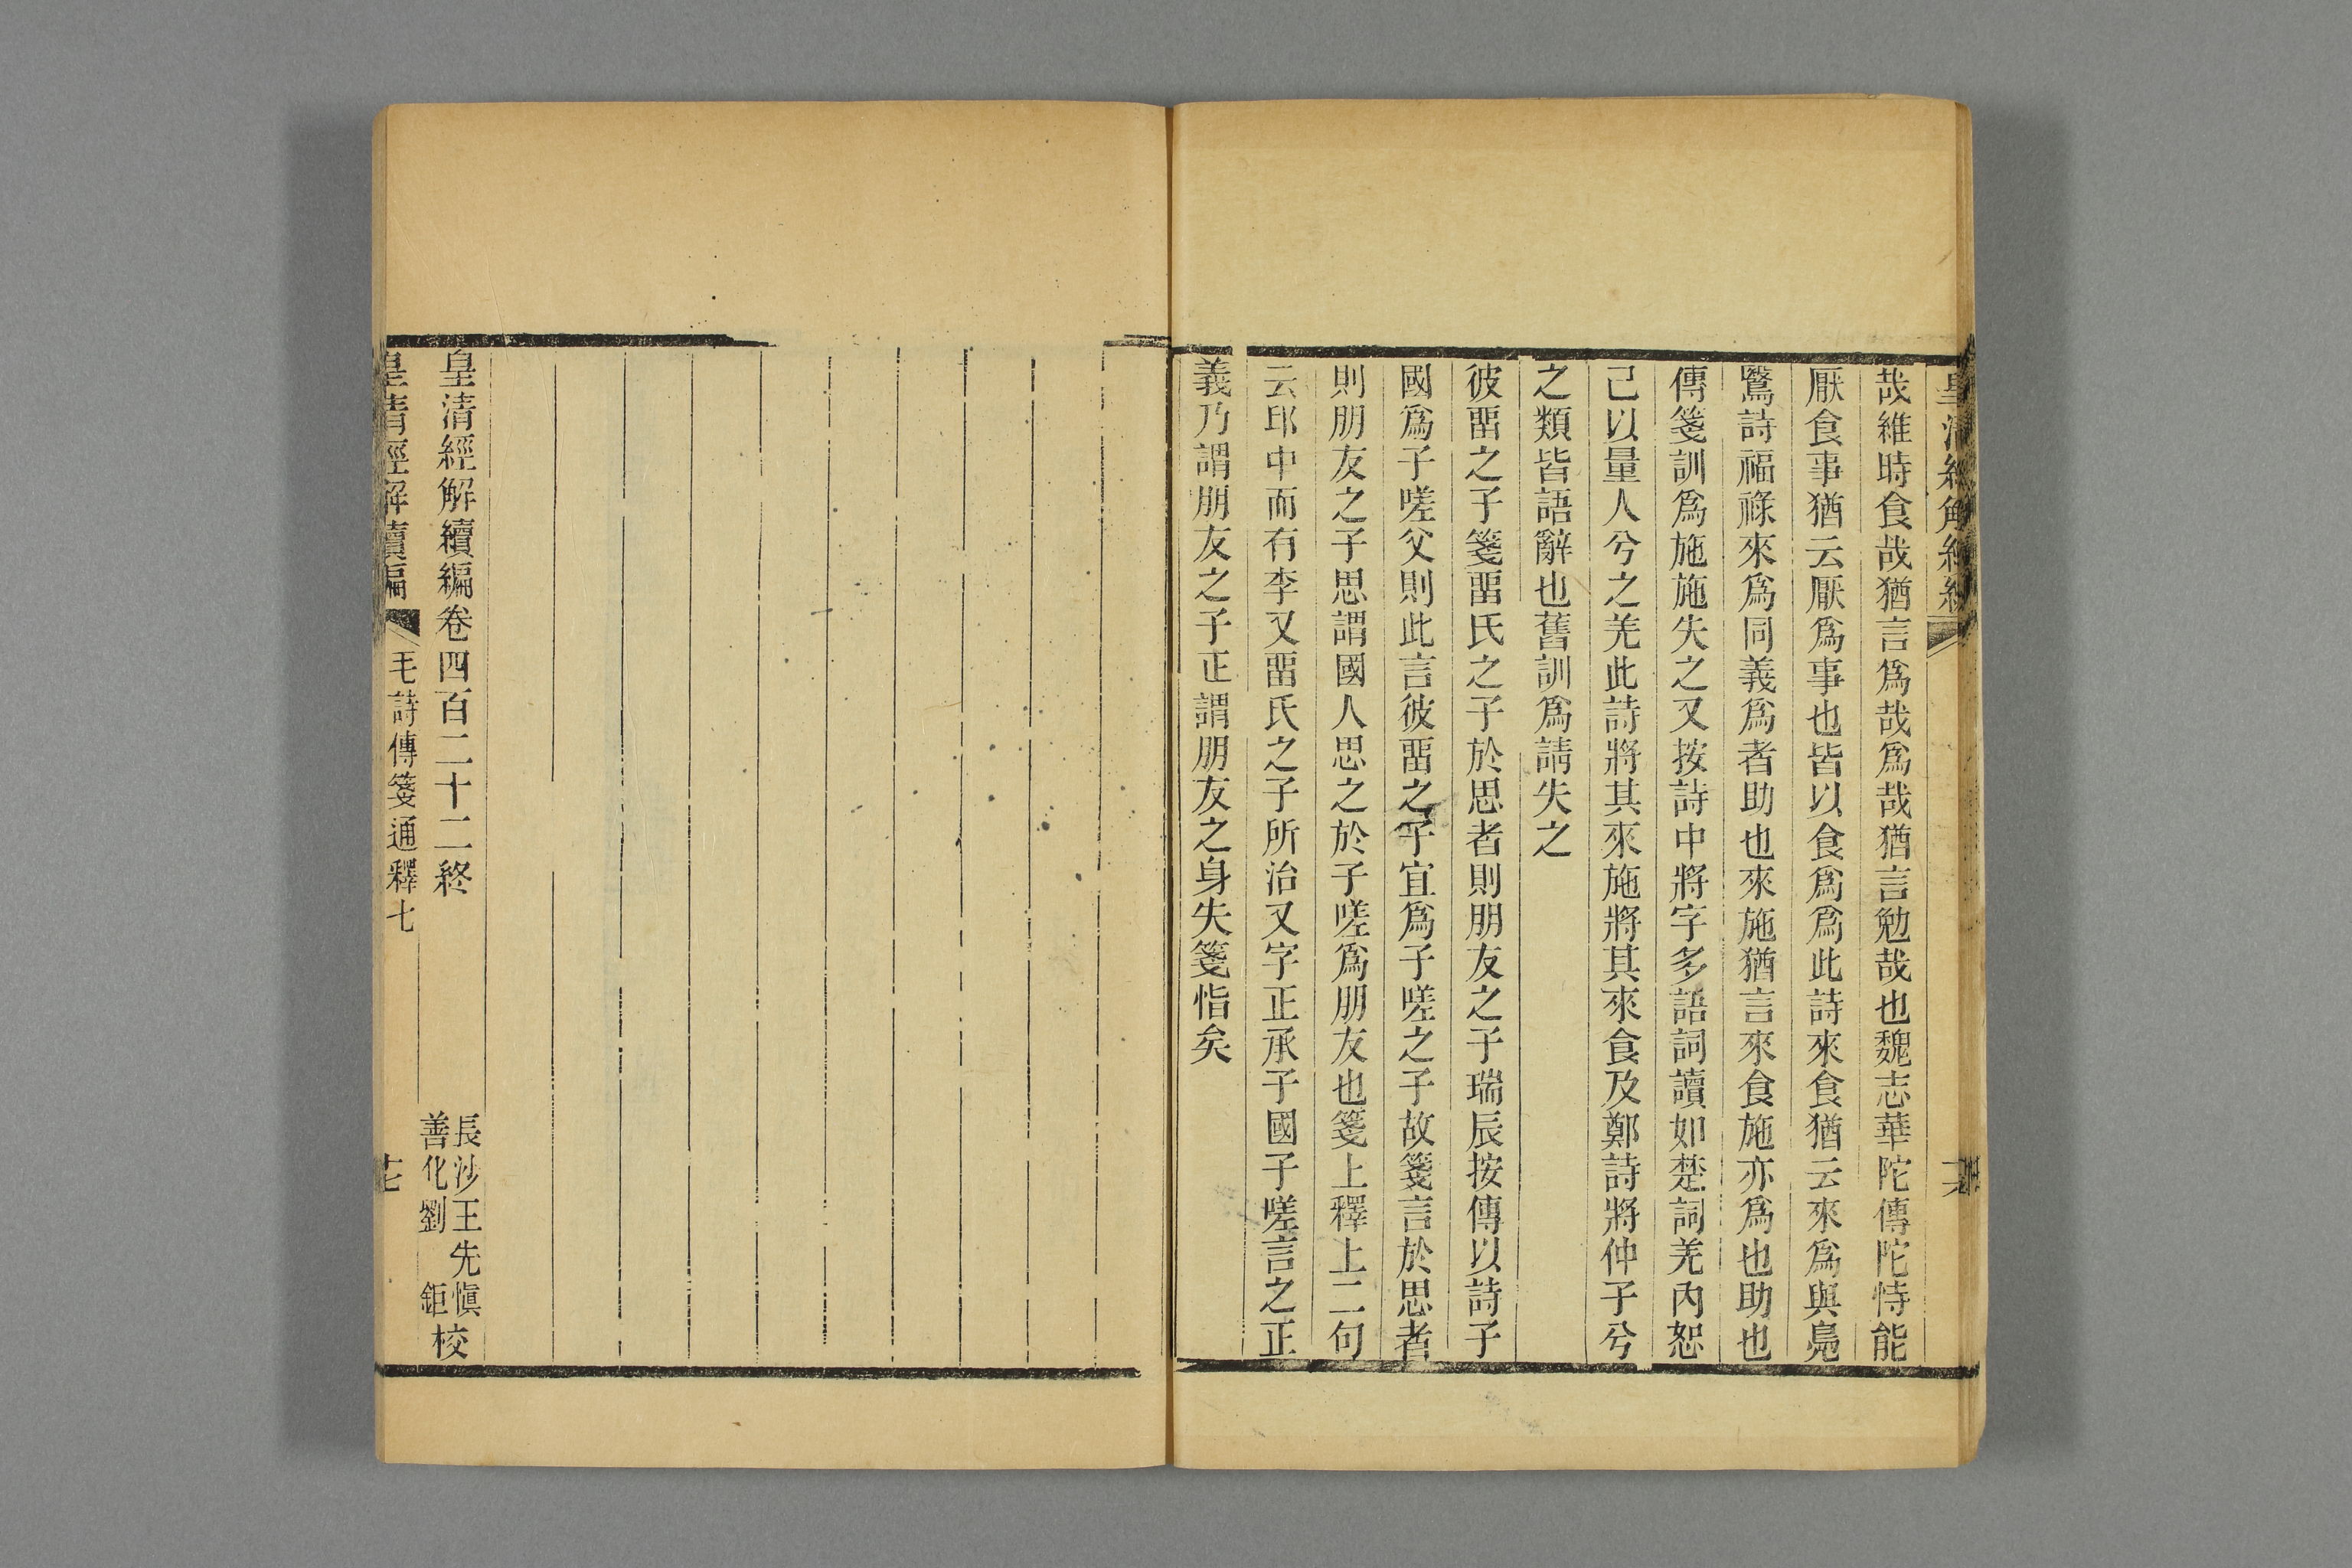 哉維時食哉猶言爲哉爲哉猶言勉哉也魏志華陀傳陀恃能
厭食事猶云厭爲事也皆以食爲爲此詩來食猶云來爲與鳧
鷖詩福祿來爲同義爲者助也來施猶言來食施亦爲也助也
傳箋訓爲施施失之又按詩中將字多語詞讀如楚詞羌內恕
己以量人兮之羌此詩將其來施將其來食及鄭詩將仲子兮
之類皆語辭也舊訓爲請失之
彼畱之子箋畱氏之子於思者則朋友之子瑞辰按傳以詩子
國爲子嗟父則此言彼畱之子宜爲子嗟之子故箋言於思者
則朋友之子思謂國人思之於子嗟爲朋友也箋上釋上二句
云邱中而有李又畱氏之子所治又字正承子國子嗟言之正
義乃謂朋友之子正謂朋友之身失箋恉矣
皇清經解續編卷四百二十二終
長沙王先愼
善化劉 鉅
校
皇清經解續編 毛詩傳箋通釋七